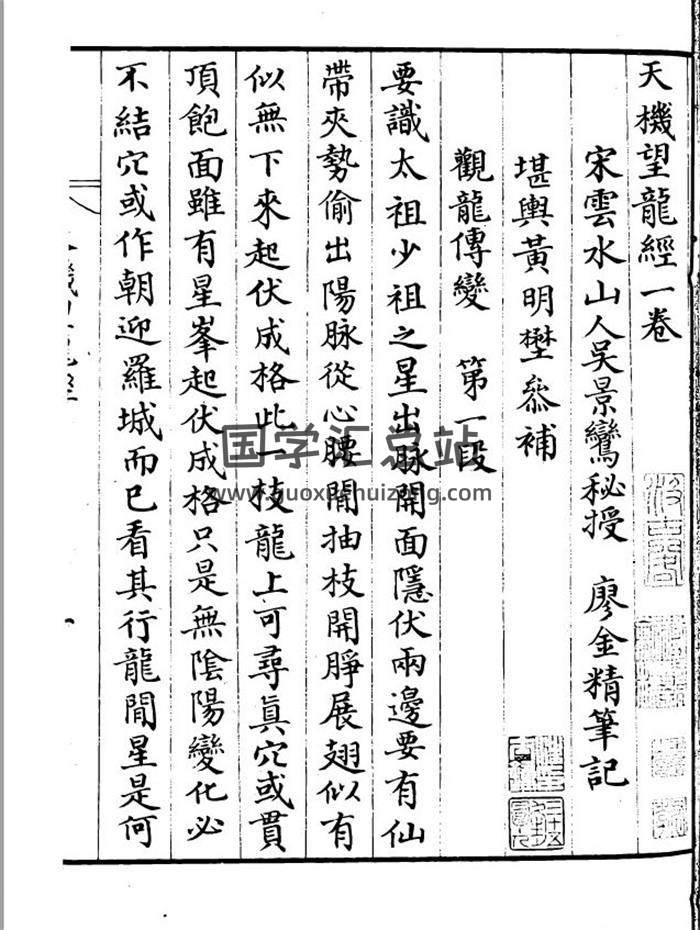 天機望龍經一卷
宋雲水山人吳景鸞秘授 廖金精筆記
堪輿黃明㙮叅補
觀龍傳變 第一段
要識太祖少祖之星出脉開面隱伏兩邊要有仙
帶夾勢偷出陽脉從心腰間抽枝開睜展翅似有
似無下來起伏成格此一枝龍上可尋真穴或貫
頂飽面雖有星峯起伏成格只是無陰陽變化必
不結穴或作朝迎羅城而已看其行龍間星是何
国学汇总站
www.guoxuehuizong.com